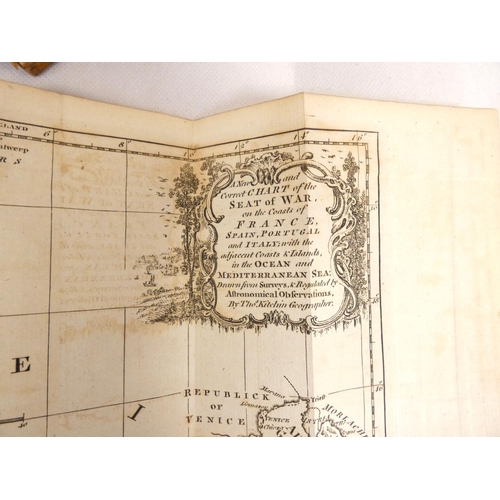 ELAND
6
8
12
14
16
ntwerp
R S
A New and
Correct CHART of the
SEAT of WAR,
on the Coasts of
FRANCE,
SPAIN, PORTUGAL
and ITALY; with the
adjacent Coasts & Islands,
in the OCEAN and
MEDITERRANEAN SEA:
Drawn from Surveys, & Regulated by
Astronomical Observations,
By Thos. Kitchin Geographer.
E
I
REPUBLICK
OF
VENICE
Marano
Triest
VENICE
ISTRIA
MORLACHIA